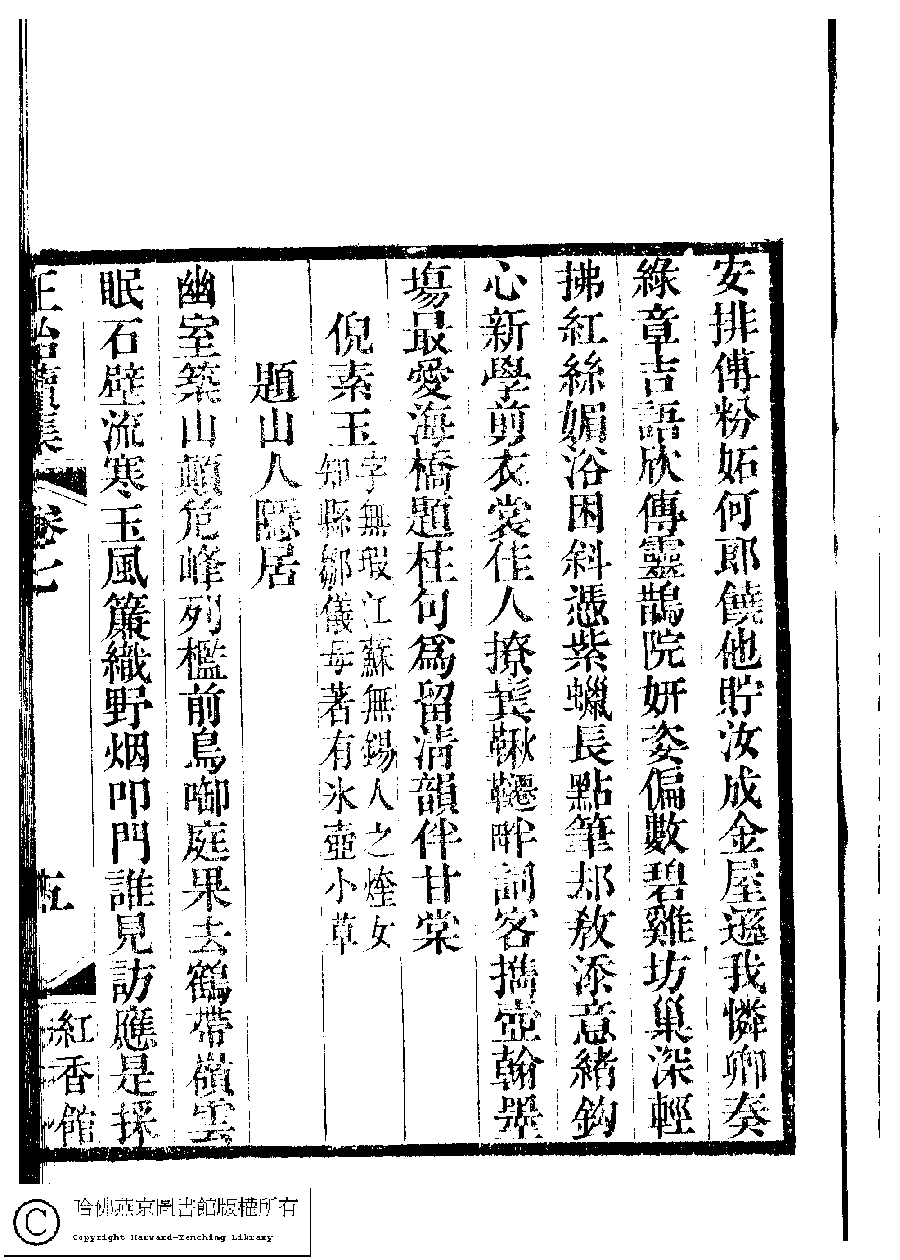 安排傅粉妬何郎饒他貯汝成金屋遜我憐卿奏
綠章吉語欣傳靈鵲院妍姿偏數碧雞坊巢深輕
拂紅絲媚浴困斜憑紫蠟長點筆却教添意緒鈎
心新學剪衣裳佳人撩鬓鞦韆畔詞客攜壺翰墨
塲最愛海橋題柱句爲留清韻伴甘棠
倪素玉字無瑕江蘇無錫人之煃女
知縣鄒儀母著有冰壺小草
題山人隱居
幽室築山巔危峰列檻前鳥啣庭果去鶴帶嶺雲
眠石壁流寒玉風簾織野烟叩門誰見訪應是採
正始續集 卷七 五 紅香館
哈佛燕京圖書館版權所有
Copyright Harvard-Yenching Library